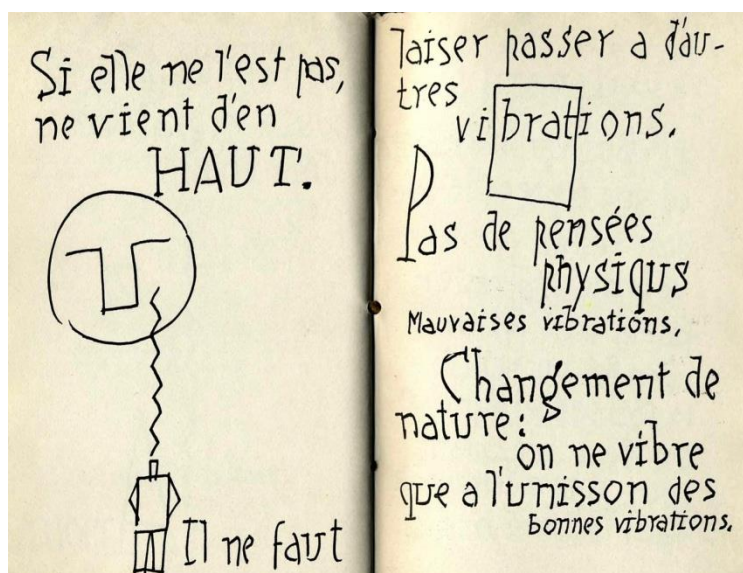 Si elle ne l'est pas,
ne vient d'en
HAUT.
Il ne faut
laiser passer a d'au-
tres
vibrations.
Pas de pensées
physiqus
Mauvaises vibrations,
Changement de
nature:
on ne vibre
que a l'unisson des
bonnes vibrations.